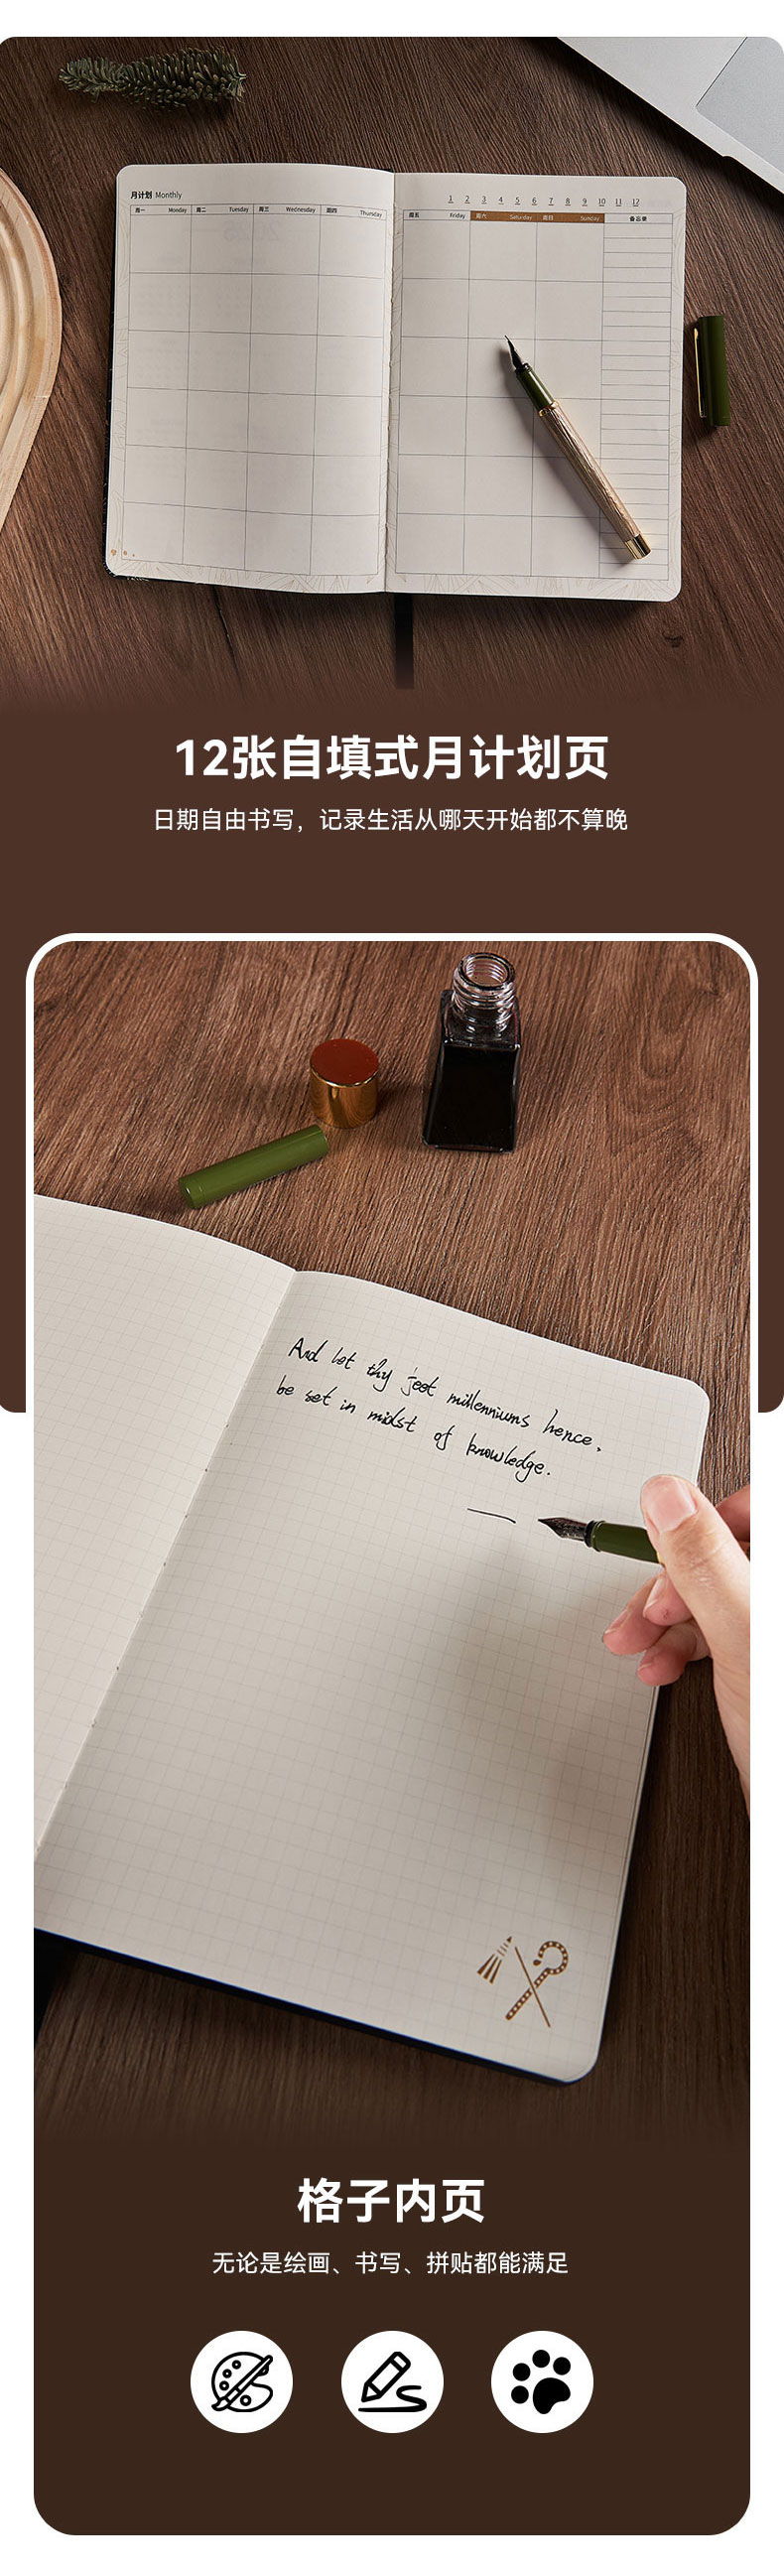 月计划 Monthly
1 2 3 4 5 6 7 8 9 10 11 12
周一 Monday 周二 Tuesday 周三 Wednesday 周四 Thursday
周五 Friday 周六 Saturday 周日 Sunday 备忘录
12张自填式月计划页
日期自由书写，记录生活从哪天开始都不算晚
And let thy feet millenniums hence,
be set in midst of knowledge.
格子内页
无论是绘画、书写、拼贴都能满足